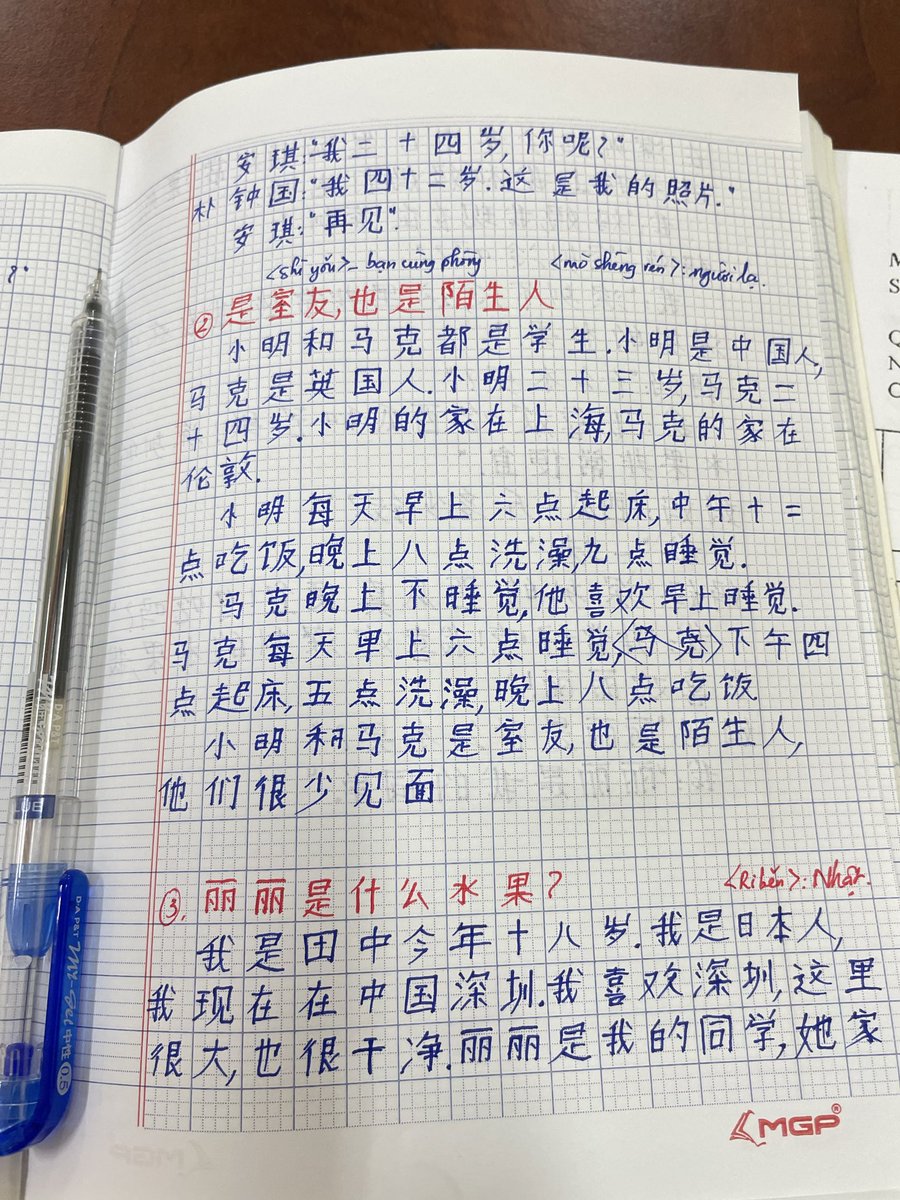 安琪:"我二十四岁,你呢?"
朴钟国:"我四十二岁.这是我的照片."
安琪:"再见".
<shì yǒu> - bạn cùng phòng <mò shēng rén>: người lạ.
② 是室友,也是陌生人
小明和马克都是学生.小明是中国人,
马克是英国人.小明二十三岁,马克二
十四岁.小明的家在上海,马克的家在
伦敦.
小明每天早上六点起床,中午十二
点吃饭,晚上八点洗澡,九点睡觉.
马克晚上不睡觉,他喜欢早上睡觉.
马克每天早上六点睡觉,<马克>下午四
点起床,五点洗澡,晚上八点吃饭
小明和马克是室友,也是陌生人,
他们很少见面
③. 丽丽是什么水果? <Rì běn>: Nhật.
我是田中今年十八岁.我是日本人,
我现在在中国深圳.我喜欢深圳,这里
很大,也很干净.丽丽是我的同学,她家
MGP
DAPAT My-Gel 中性 0.5